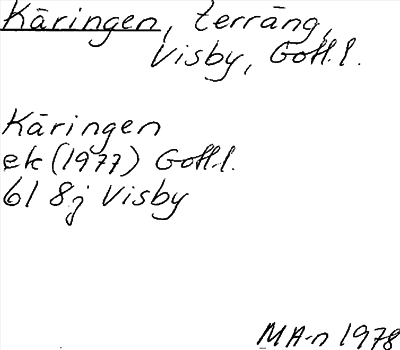 Käringen, terräng,
Visby, Gotl.l.
Käringen
ek (1977) Gotl.l.
6I 8j Visby
MA-n 1978